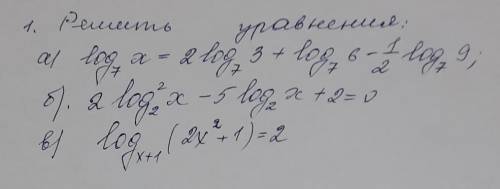 1. Решить уравнения:
а) log₇ x = 2 log₇ 3 + log₇ 6 - 1/2 log₇ 9;
б). 2 log₂² x - 5 log₂ x + 2 = 0
в) log_{x+1} (2x² + 1) = 2